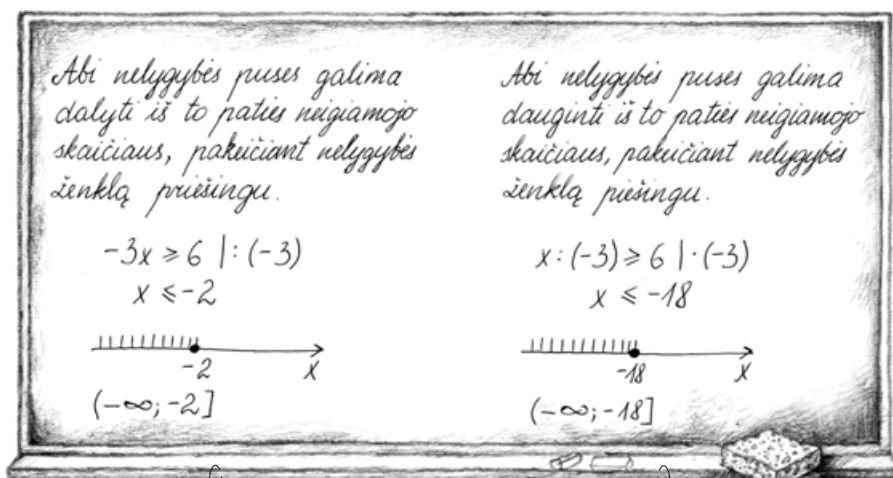 Abi nelygybės puses galima
dalyti iš to paties neigiamojo
skaičiaus, pakeičiant nelygybės
ženklą priešingu.
-3x ≥ 6 | : (-3)
x ≤ -2
-2 x
(-∞; -2]
Abi nelygybės puses galima
dauginti iš to paties neigiamojo
skaičiaus, pakeičiant nelygybės
ženklą piešingu.
x : (-3) ≥ 6 | · (-3)
x ≤ -18
-18 x
(-∞; -18]